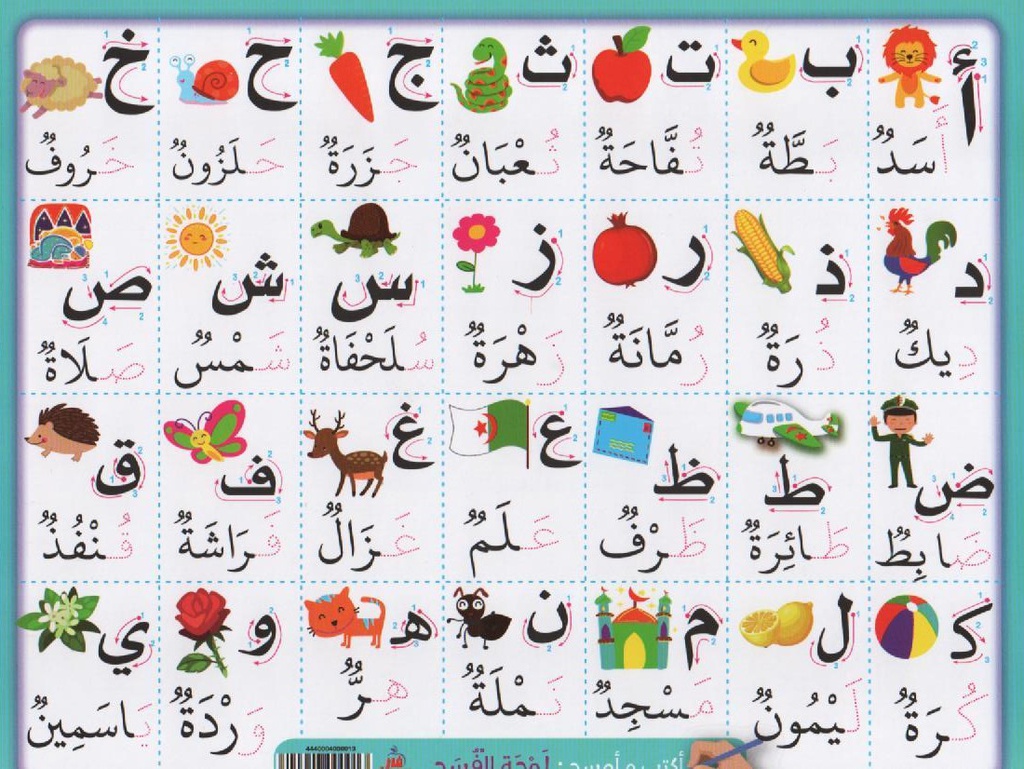 أ ب ت ث ج ح خ
أَسَدٌ بَطَّةٌ تُفَّاحَةٌ ثُعْبَانٌ جَزَرَةٌ حَلَزُونٌ خَرُوفٌ
د ذ ر ز س ش ص
دِيكٌ ذُرَةٌ رُمَّانَةٌ زَهْرَةٌ سُلَحْفَاةٌ شَمْسٌ صَلَاةٌ
ض ط ظ ع غ ف ق
ضَابِطٌ طَائِرَةٌ ظَرْفٌ عَلَمٌ غَزَالٌ فَرَاشَةٌ قُنْفُذٌ
ك ل م ن هـ و ي
كُرَةٌ لَيْمُونٌ مَسْجِدٌ نَمْلَةٌ هِرٌّ وَرْدَةٌ يَاسَمِينٌ
أكتب و أمسح :